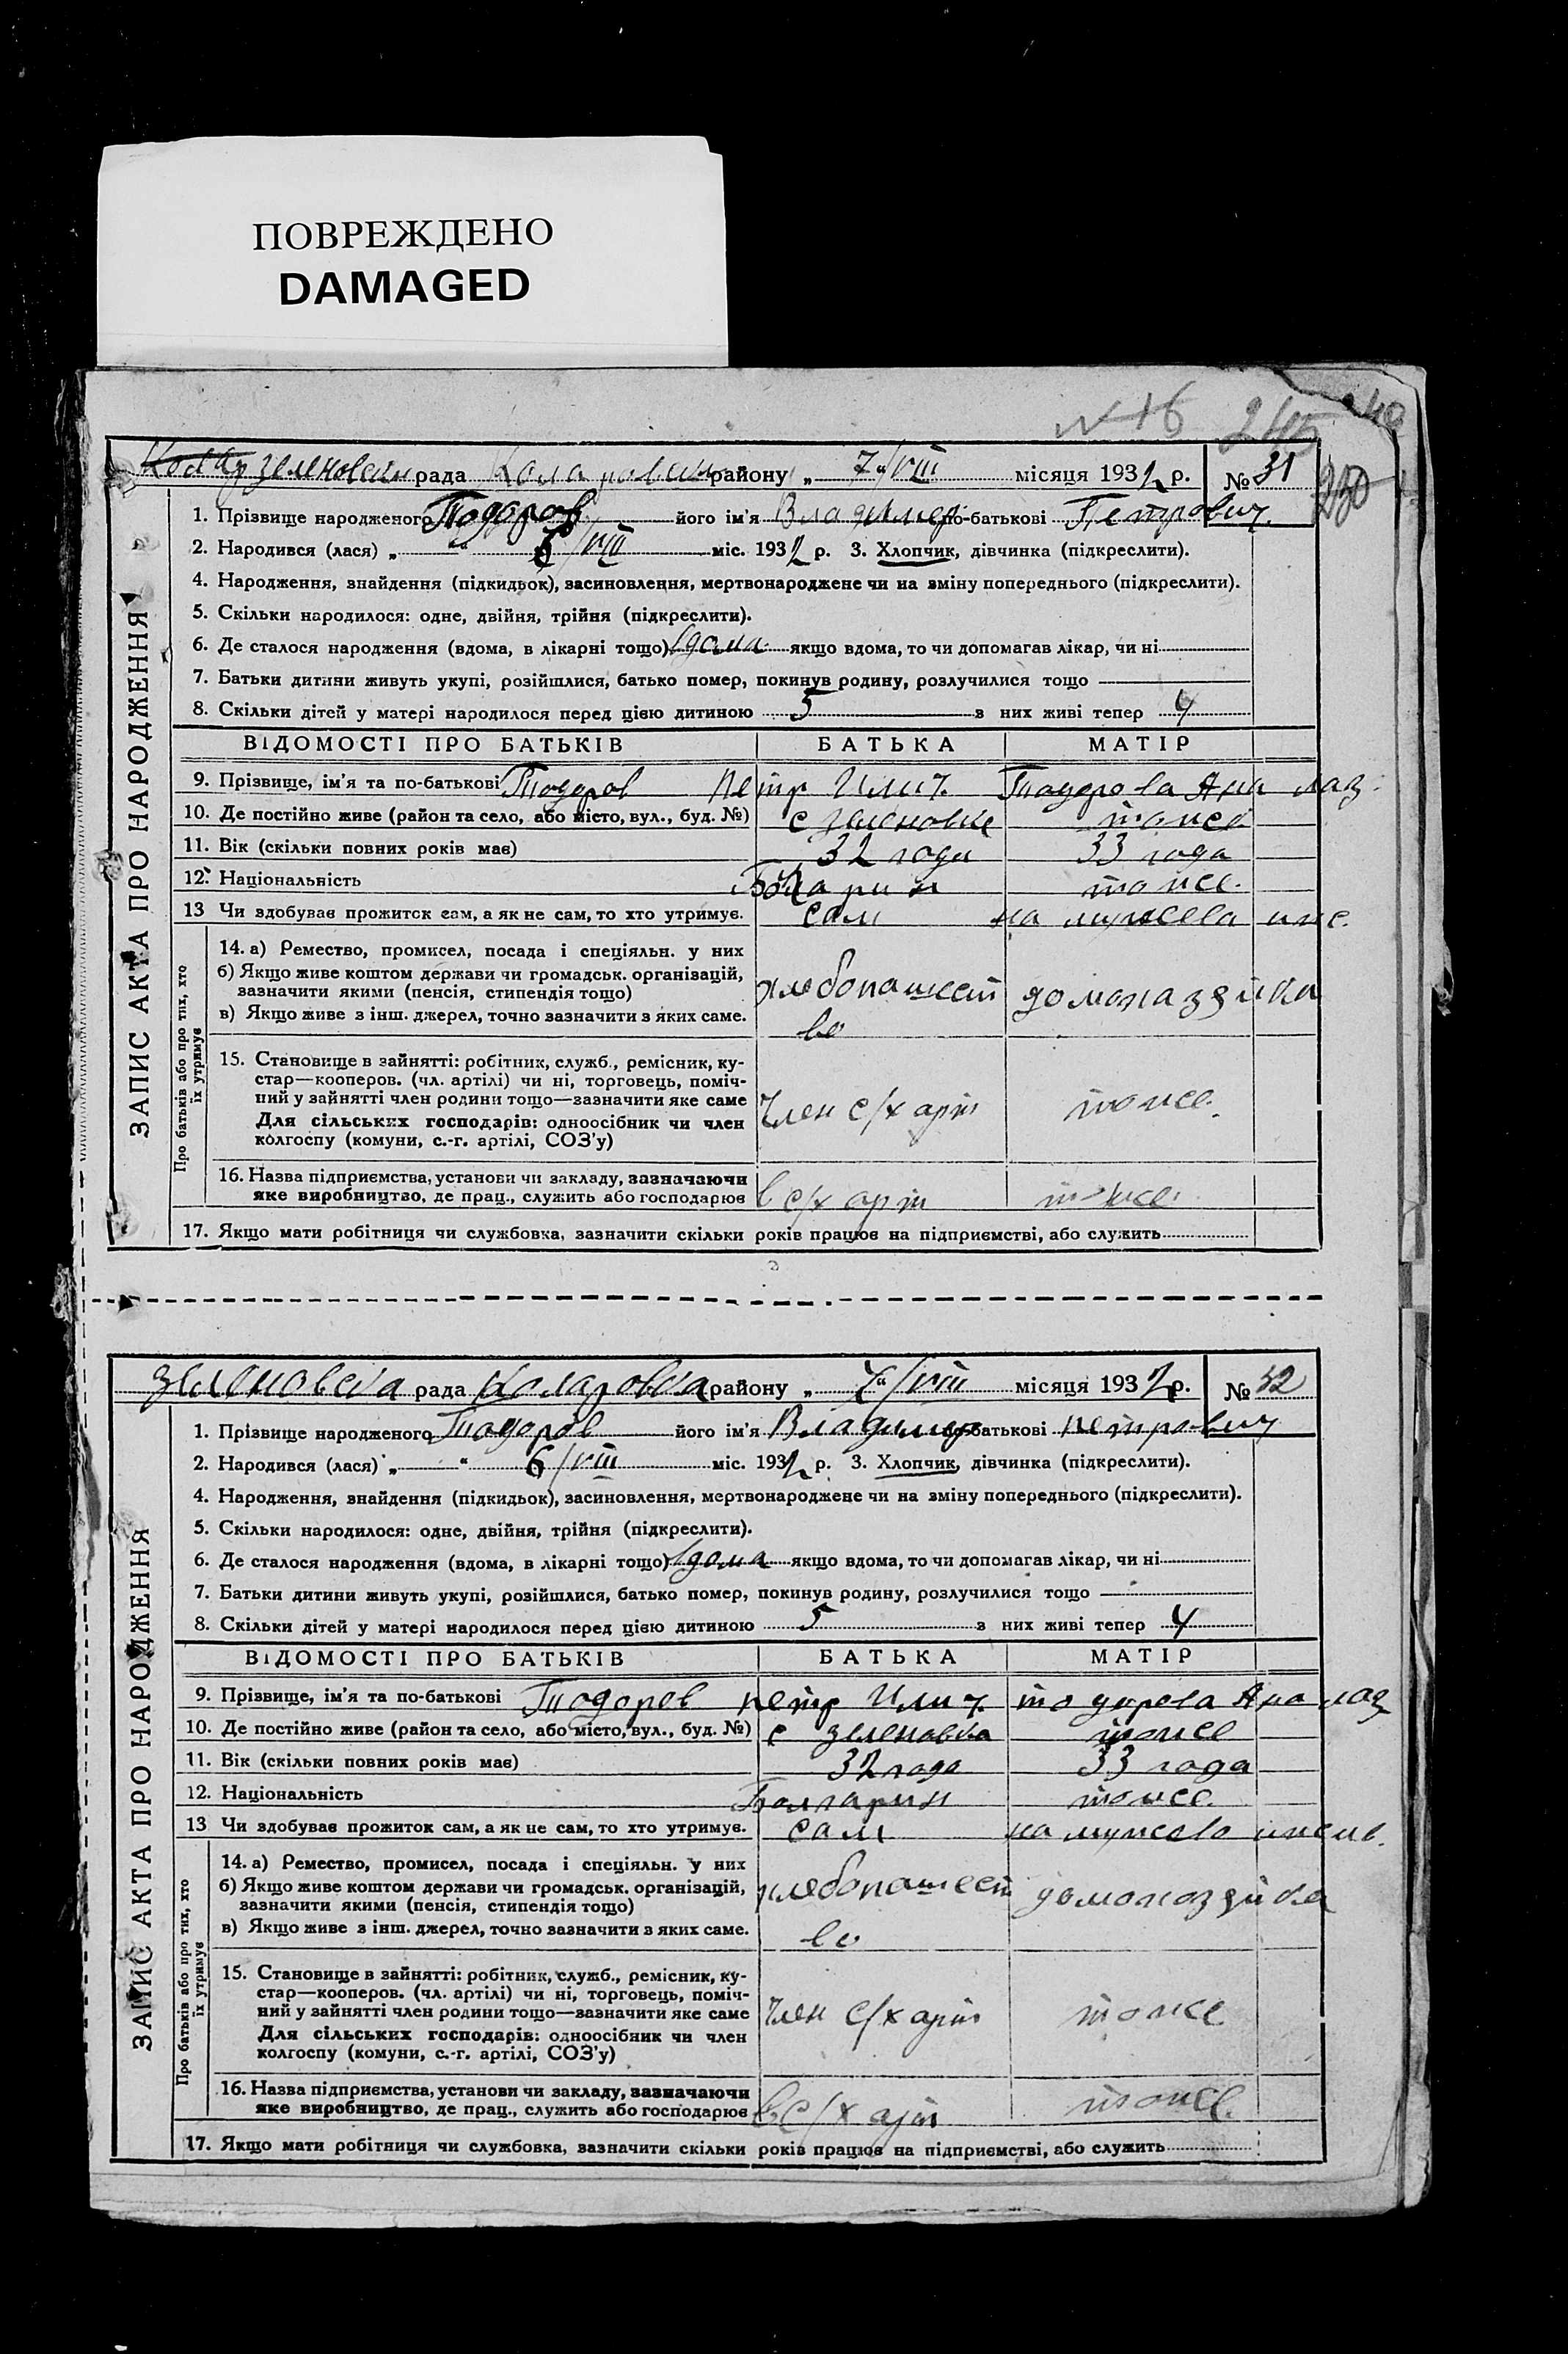 ПОВРЕЖДЕНО
DAMAGED
№ 16 245
250
зеленовски рада Коларовски району „ 7 “/VIII місяця 1932 р. № 31
ЗАПИС АКТА ПРО НАРОДЖЕННЯ
1. Прізвище народженого Тодоров його ім'я Владимер по-батькові Петрович.
2. Народився (лася) „ “ 6/VIII міс. 1932 р. 3. Хлопчик, дівчинка (підкреслити).
4. Народження, знайдення (підкидьок), засиновлення, мертвонароджене чи на зміну попереднього (підкреслити).
5. Скільки народилося: одне, двійня, трійня (підкреслити).
6. Де сталося народження (вдома, в лікарні тощо) вдома якщо вдома, то чи допомагав лікар, чи ні
7. Батьки дитини живуть укупі, розійшлися, батько помер, покинув родину, розлучилися тощо
8. Скільки дітей у матері народилося перед цією дитиною 5 з них живі тепер 4
ВІДОМОСТІ ПРО БАТЬКІВ БАТЬКА МАТІР
9. Прізвище, ім'я та по-батькові Тодоров Петр Илич Тодорова Ана лаз.
10. Де постійно живе (район та село, або місто, вул., буд. №) с зеленовке тоже
11. Вік (скільки повних років має) 32 годи 33 года
12. Національність тоже.
13 Чи здобував прожиток сам, а як не сам, то хто утримує. сам на мужева иже.
Про батьків або про тих, хто їх утримує
14. а) Ремество, промисел, посада і спеціяльн. у них
б) Якщо живе коштом держави чи громадськ. організацій,
зазначити якими (пенсія, стипендія тощо)
в) Якщо живе з інш. джерел, точно зазначити з яких саме.
хлебопашест во домохазяйка
15. Становище в зайнятті: робітник, служб., ремісник, ку-
стар—кооперов. (чл. артілі) чи ні, торговець, поміч-
ний у зайнятті член родини тощо—зазначити яке саме
Для сільських господарів: одноосібник чи член
колгоспу (комуни, с.-г. артілі, СОЗ'у)
член с/х арт тоже.
16. Назва підприємства, установи чи закладу, зазначаючи
яке виробництво, де прац., служить або господарює
в с/х арт тоже.
17. Якщо мати робітниця чи службовка, зазначити скільки років працює на підприємстві, або служить
зеленовска рада Коларовска району „ 7 “/VIII місяця 1932 р. № 32
ЗАПИС АКТА ПРО НАРОДЖЕННЯ
1. Прізвище народженого Тодоров його ім'я Владимер по-батькові петрович
2. Народився (лася) „ “ 6/VIII міс. 1932 р. 3. Хлопчик, дівчинка (підкреслити).
4. Народження, знайдення (підкидьок), засиновлення, мертвонароджене чи на зміну попереднього (підкреслити).
5. Скільки народилося: одне, двійня, трійня (підкреслити).
6. Де сталося народження (вдома, в лікарні тощо) вдома якщо вдома, то чи допомагав лікар, чи ні
7. Батьки дитини живуть укупі, розійшлися, батько помер, покинув родину, розлучилися тощо
8. Скільки дітей у матері народилося перед цією дитиною 5 з них живі тепер 4
ВІДОМОСТІ ПРО БАТЬКІВ БАТЬКА МАТІР
9. Прізвище, ім'я та по-батькові Тодоров петр Илич тодорова Ана лаз
10. Де постійно живе (район та село, або місто, вул., буд. №) с зеленовка тоже
11. Вік (скільки повних років має) 32 года 33 года
12. Національність Болгарин тоже.
13 Чи здобував прожиток сам, а як не сам, то хто утримує. сам на мужево
Про батьків або про тих, хто їх утримує
14. а) Ремество, промисел, посада і спеціяльн. у них
б) Якщо живе коштом держави чи громадськ. організацій,
зазначити якими (пенсія, стипендія тощо)
в) Якщо живе з інш. джерел, точно зазначити з яких саме.
хлебопашест во домохозяйка
15. Становище в зайнятті: робітник, служб., ремісник, ку-
стар—кооперов. (чл. артілі) чи ні, торговець, поміч-
ний у зайнятті член родини тощо—зазначити яке саме
Для сільських господарів: одноосібник чи член
колгоспу (комуни, с.-г. артілі, СОЗ'у)
член с/х арт тоже
16. Назва підприємства, установи чи закладу, зазначаючи
яке виробництво, де прац., служить або господарює
в с/х арт тоже.
17. Якщо мати робітниця чи службовка, зазначити скільки років працює на підприємстві, або служить